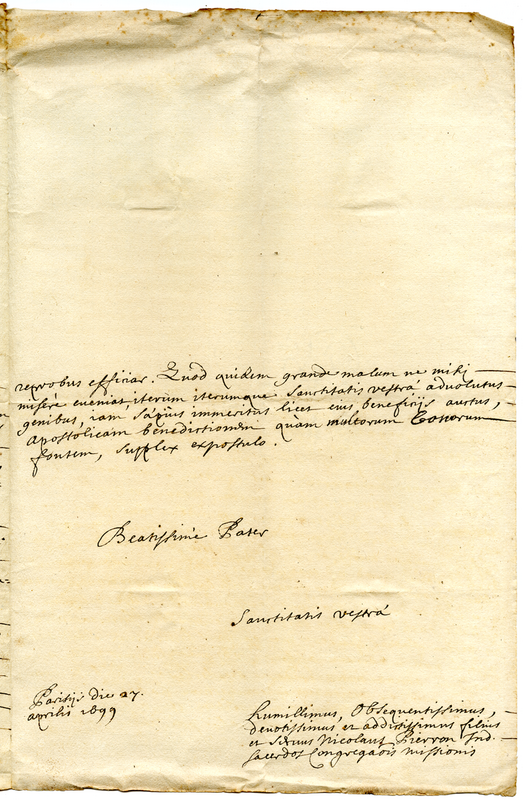 reprobus efficiar. Quod quidem grande malum ne mihi
misere eueniat, iterum iterumque Sanctitatis vestrá aduolutus
genibus, iam sæpius immeritus licet eius beneficijs auctus,
Apostolicam benedictionem quam multorum bonorum
fontem, supplex expostulo.
Beatissime Pater
Sanctitatis vestrá
Parisijs die 27.
aprilis 1699
humillimus, Obsequentissimus,
deuotissimus et addictissimus filius
et seruus Nicolaus Pierron Ind.
sacerdos Congregaõis missionis